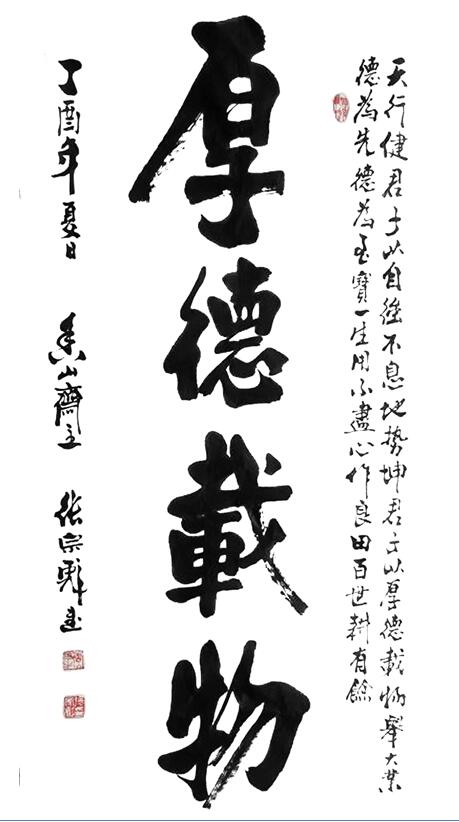 天行健君子以自強不息地势坤君子以厚德載物舉大業
德為先德為至寶一生用不盡心作良田百世耕有餘
厚德載物
丁酉年夏日 山齋主 張宗 書